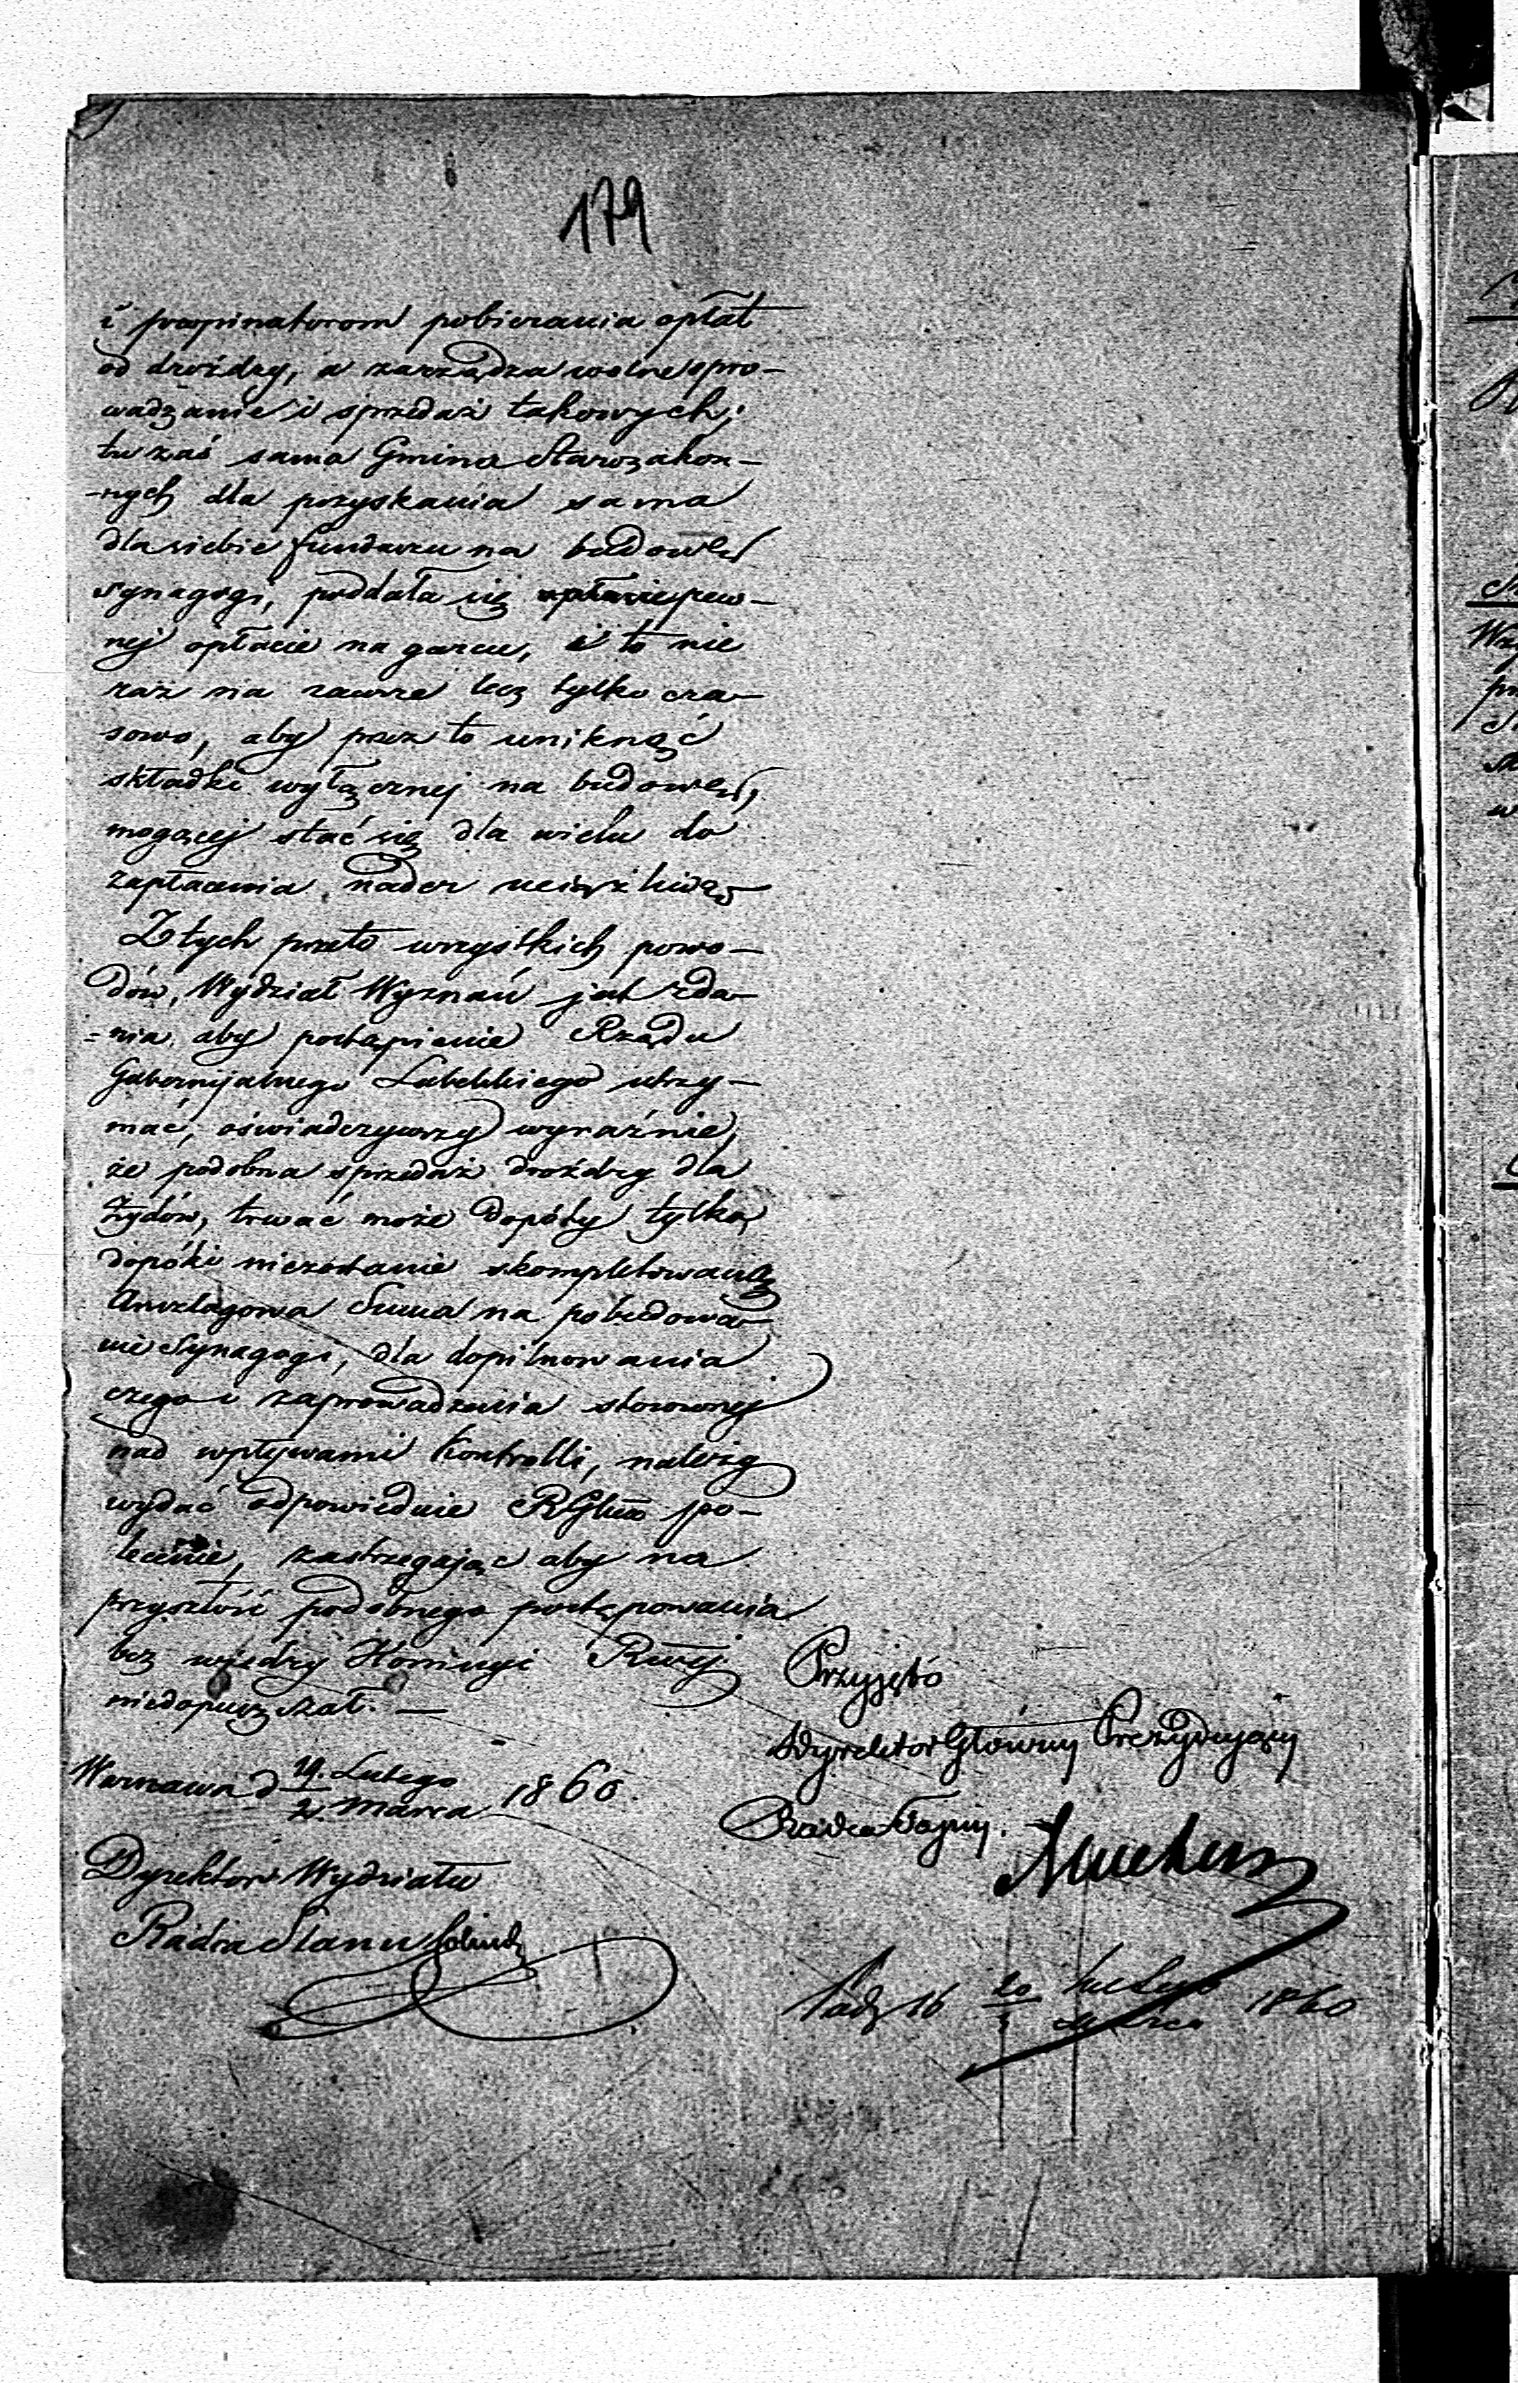 179
i propinatorom pobierania opłat
od drożdży, a zarządza wolne spro-
wadzanie i sprzedaż takowych;
tu zaś sama Gmina Starozakon-
-nych dla pozyskania sama
dla siebie funduszu na budowlę
synagogi, poddała się pew-
nej opłacie na garcu, i to nie
raz na zawsze lecz tylko cza-
sowo, aby przez to uniknąć
składki wyłącznej na budowlę,
mogącej stać się dla wielu do
zapłacenia nader uciążliwą
Z tych przeto wszystkich powo-
dów, Wydział Wyznań jest zda-
=nia aby postąpienie Rządu
Gubernijalnego Lubelskiego utrzy-
mać, oświadczywszy wyraźnie,
że podobna sprzedaż drożdży dla
Żydów, trwać może dopóty tylko,
dopóki niezostanie skompletowaną
Anszlagowa Summa na pobudowa-
nie Synagogi, dla dopilnowania
czego i zaprowadzenia stosownej
nad wpływami Kontrolli, należy
wydać odpowiednie RGmu po-
lecenie, zastrzegając aby na
przyszłość podobnego postępowania
bez wiedzy Kommyi Rwej
niedopuszczał. —
Przyjęto
Dyrektor Główny Prezydujący
Warszawa d Lutego
2 Marca 1860.
Radca Tajny.
Dyrektor Wydziału
Radca Stanu
20 Lutego
Marca 1860